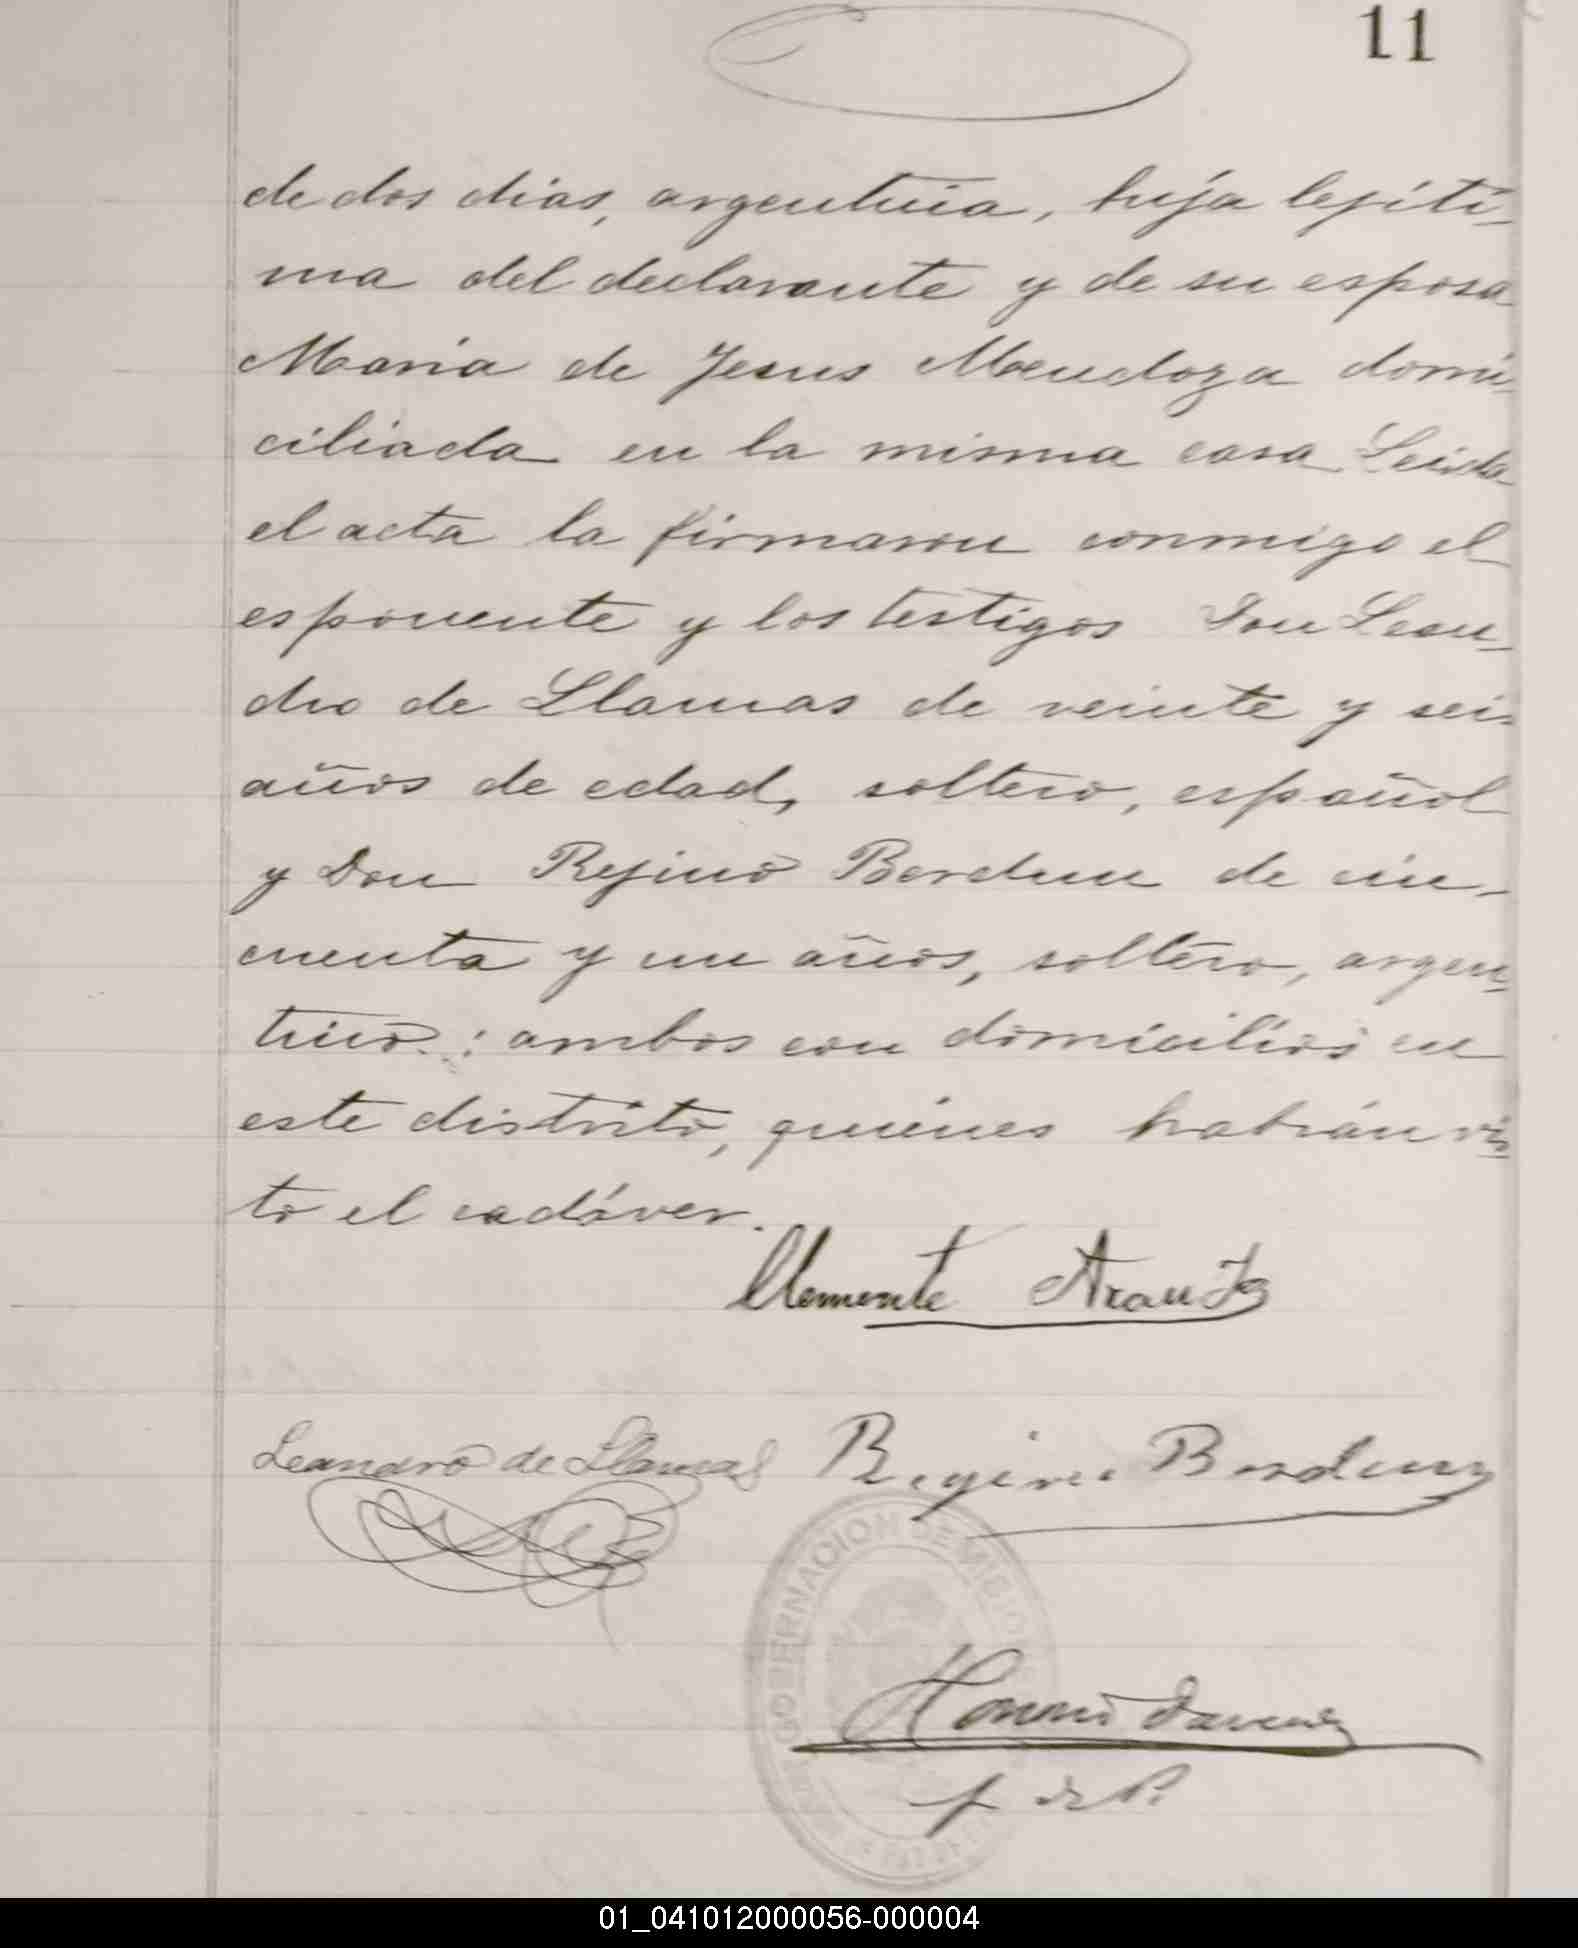 11
de dos dias, argentina, hija lejíti-
ma del declarante y de su esposa
Maria de Jesus Mendoza domi-
ciliada en la misma casa Leida
el acta la firmaron conmigo el
esponente y los testigos Don Lean-
dro de Llamas de veinte y seis
años de edad, soltero, español
y Don Rejino Bordun de cin-
cuenta y un años, soltero, argen-
tino: ambos con domicilios en
este distrito, quiénes habrán vis-
to el cadáver.
Clemente Araujo
Leandro de Llamas Regino Bordun
GOBERNACION DE MISIONES
J de P.
01_041012000056-000004